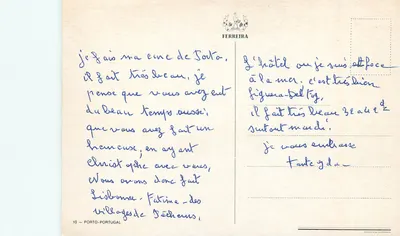 FERREIRA
je fais ma cure de Porto,
il fait très beau, je
pense que vous avez eut
du beau temps aussi,
que vous avez fait un
heureuse, en ayant
Christophe avec vous,
Nous avons donc fait
Lisbonne. Fatima - des
villages de Pêcheurs,
10 - PORTO-PORTUGAL
L'hôtel ou je suis est face
à la mer. c'est très bien
il fait très beau
surtout
je vous embrasse